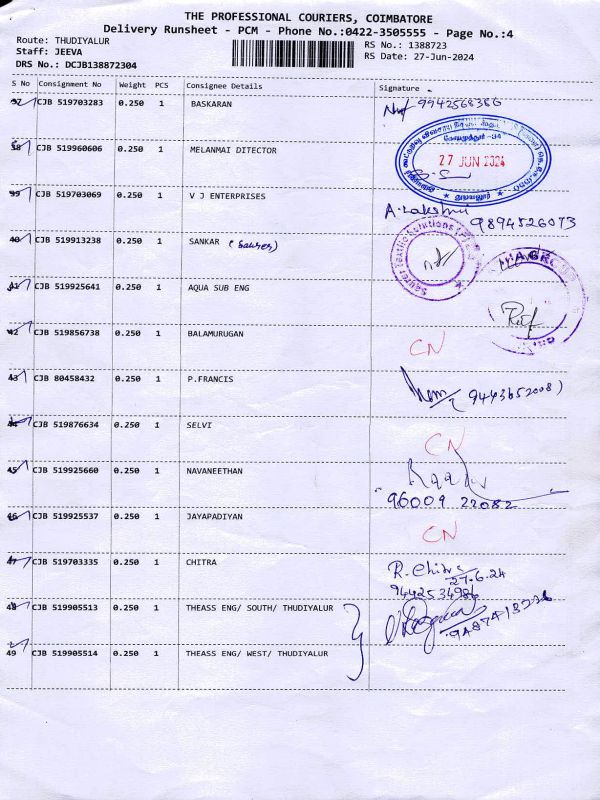 THE PROFESSIONAL COURIERS, COIMBATORE
Delivery Runsheet - PCM - Phone No.:0422-3505555 - Page No.:4
Route: THUDIYALUR
Staff: JEEVA
DRS No.: DCJB138872304
RS No.: 1388723
RS Date: 27-Jun-2024
S No Consignment No Weight PCS Consignee Details Signature
CJB 519703283 0.250 1 BASKARAN 9942568386
38 CJB 519960606 0.250 1 MELANMAI DITECTOR
27 JUN 2024
39 CJB 519703069 0.250 1 V J ENTERPRISES A. Lakshmi 9894526073
40 CJB 519913238 0.250 1 SANKAR (Saurer)
Saurer Textile Solutions
41 CJB 519925641 0.250 1 AQUA SUB ENG
42 CJB 519856738 0.250 1 BALAMURUGAN CN
43 CJB 80458432 0.250 1 P.FRANCIS (9443652008)
44 CJB 519876634 0.250 1 SELVI CN
45 CJB 519925660 0.250 1 NAVANEETHAN 96009 22082
46 CJB 519925537 0.250 1 JAYAPADIYAN CN
47 CJB 519703335 0.250 1 CHITRA R. Chitra
27-6-24
9442534986
48 CJB 519905513 0.250 1 THEASS ENG/ SOUTH/ THUDIYALUR
49 CJB 519905514 0.250 1 THEASS ENG/ WEST/ THUDIYALUR